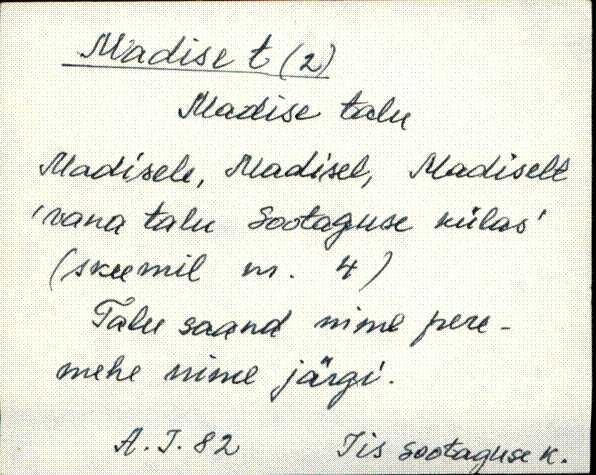 Madise t (2)
Madise talu
Madisele, Madisel, Madiselt
'vana talu Sootaguse külas'
(skeemil nr. 4)
Talu saand nime pere-
mehe nime järgi.
A. J. 82 Iis Sootaguse k.